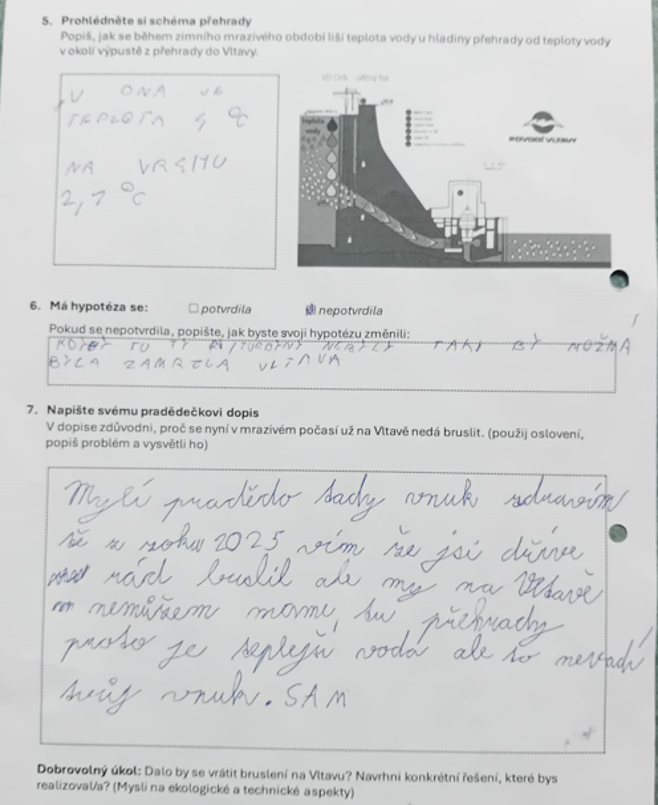 5. Prohlédněte si schéma přehrady
Popiš, jak se během zimního mrazivého období liší teplota vody u hladiny přehrady od teploty vody
v okolí výpustě z přehrady do Vltavy.
U DNA JE
TEPLOTA 4 °C
NA VRCHU
2,1 °C
teplota
vody
POVODÍ VLTAVY
6. Má hypotéza se: ☐ potvrdila ☒ nepotvrdila
Pokud se nepotvrdila, popište, jak byste svoji hypotézu změnili:
KDYBY TU TY NEBYLY TAK BY MOŽNÁ
BYLA ZAMRZLA VLTAVA
7. Napište svému pradědečkovi dopis
V dopise zdůvodni, proč se nyní v mrazivém počasí už na Vltavě nedá bruslit. (použij oslovení,
popiš problém a vysvětli ho)
Mylí pradědo tady vnuk zdravím
tě z roku 2025 vím že jsi dříve
rád bruslil ale my na Vltavě
nemůžem mame tu přehrady
proto je teplejší voda ale to nevadí
tvůj vnuk. SAM
Dobrovolný úkol: Dalo by se vrátit bruslení na Vltavu? Navrhni konkrétní řešení, které bys
realizoval/a? (Mysli na ekologické a technické aspekty)